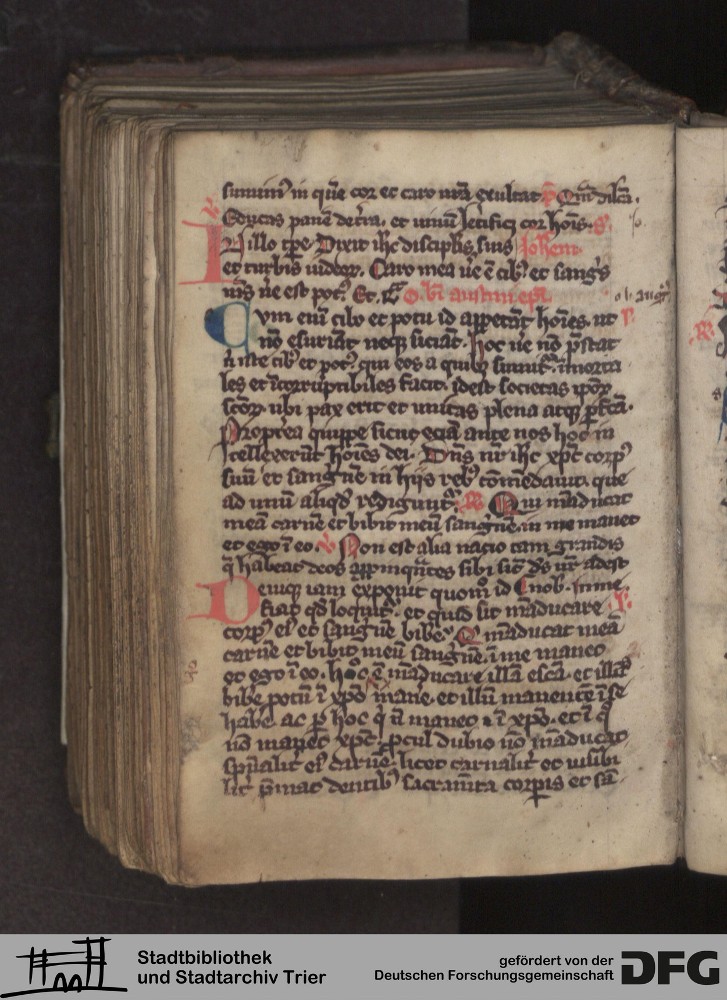 sumim9 in quē cor et caro nr̄a exultat p̄ Qm̄ dilc̄a.
v Educas panē de t̄ra. et vinū letificꝫ cor hoīs. S.
In illo tp̄e. Dixit ih̄c discipl̄is suis Johem
et turbis iudeoꝝ. Caro mea ūe ē cib9 et sangⁱs
m̄s ūe est pot9. Et. r̄ O. bī austini ep̄i
ol. augⁱ
Cvm eni cibo et potu id appetāt hoīes. ut
nō esuriāt neqꝫ siciāt. Hoc ūe nō p̄stat
n̄ iste cib9 et pot9. qui eos a quibꝫ sumit᷑. īmorta
les et īcorruptibiles facit. idest societas ip̄oꝝ
sc̄oꝝ. ubi pax erit et unitas plena atqꝫ p̄fc̄a.
Propt̄ea quippe sicut eciā ante nos hoc in
tellexerūt hoīes dei. Dn̄s nr̄ ih̄c xp̄c corp9
suū et sangⁱnē in hiis reb9 cōmēdauit. que
ad unū aliqd̄ rediguntᷣ. R Qui māducat
meā carnē et bibit meū sangⁱnē. in me manet
et ego ī eo. v Non est alia nacio tam grandis
q̄ habeat deos appinqn̄tes sibi sic̄ ds̄ nr̄ adest
Deniqꝫ iam exponit quomō id nob. in me
fiat qd̄ loquit᷑. et quid sit māducare
corp9 ei9 et sangⁱnē bibe. Q māducat meā
carnē et bibit meū sangⁱnē. ī me manet
et ego ī eo. hoc ē māducare illā escā. et illū
bibe potū ī xp̄o manē. et illū manentē ī se
habē. ac p̄ hoc q n̄ manet ī xp̄o. et ī q̊
nō manet xp̄c. p̄cul dubio nō māducat
sp̄ualit̄ ei9 carnē. licet carnalit̄ et visibi
lit̄ p̄mat dentib9 sacram̄ta corp̄is et sā
Stadtbibliothek
und Stadtarchiv Trier
gefördert von der
Deutschen Forschungsgemeinschaft
DFG